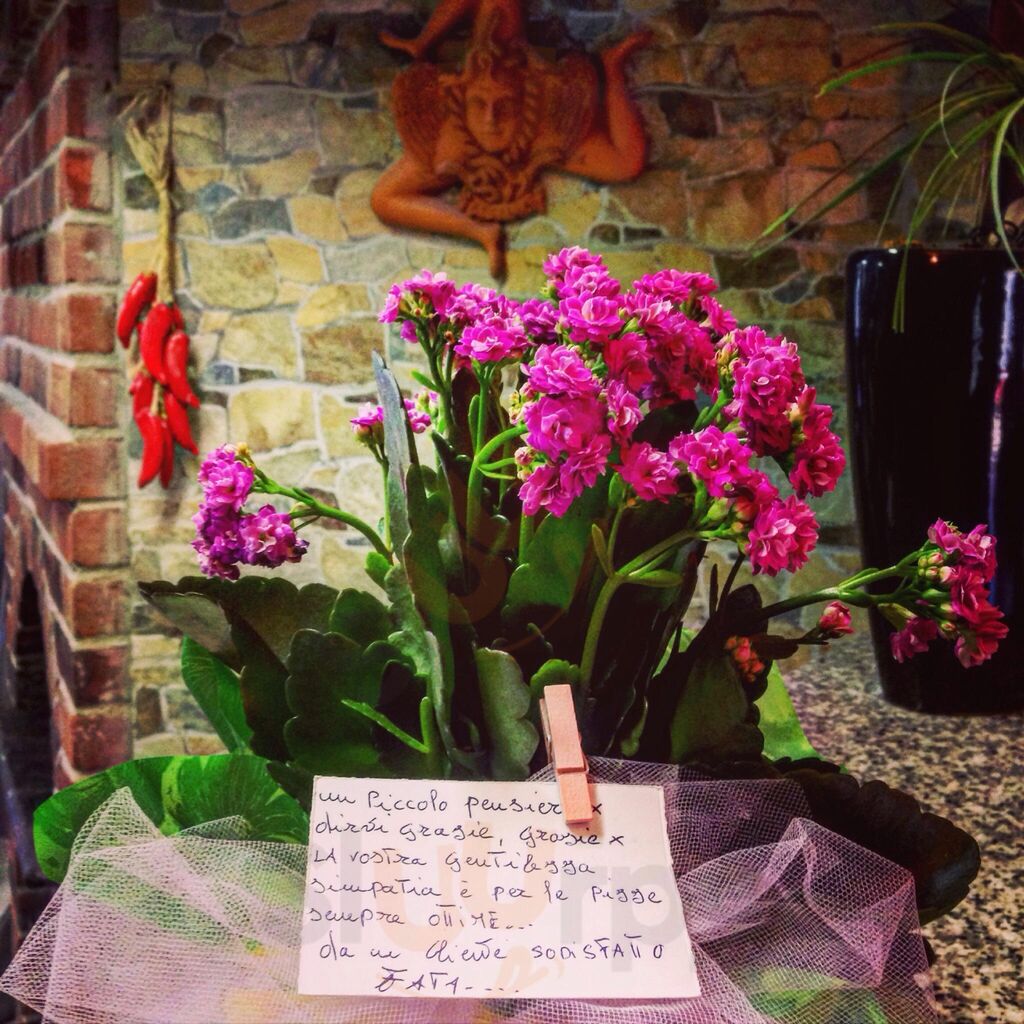 un Piccolo pensier x
dirvi grazie, grazie x
LA vostra gentilezza
simpatia è per le pizze
sempre ottime...
da un cliente SODISFATTO
FATA.....